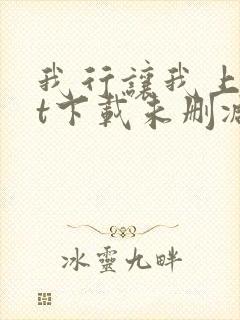 我行讓我上
t下載未刪減
冰靈九畔